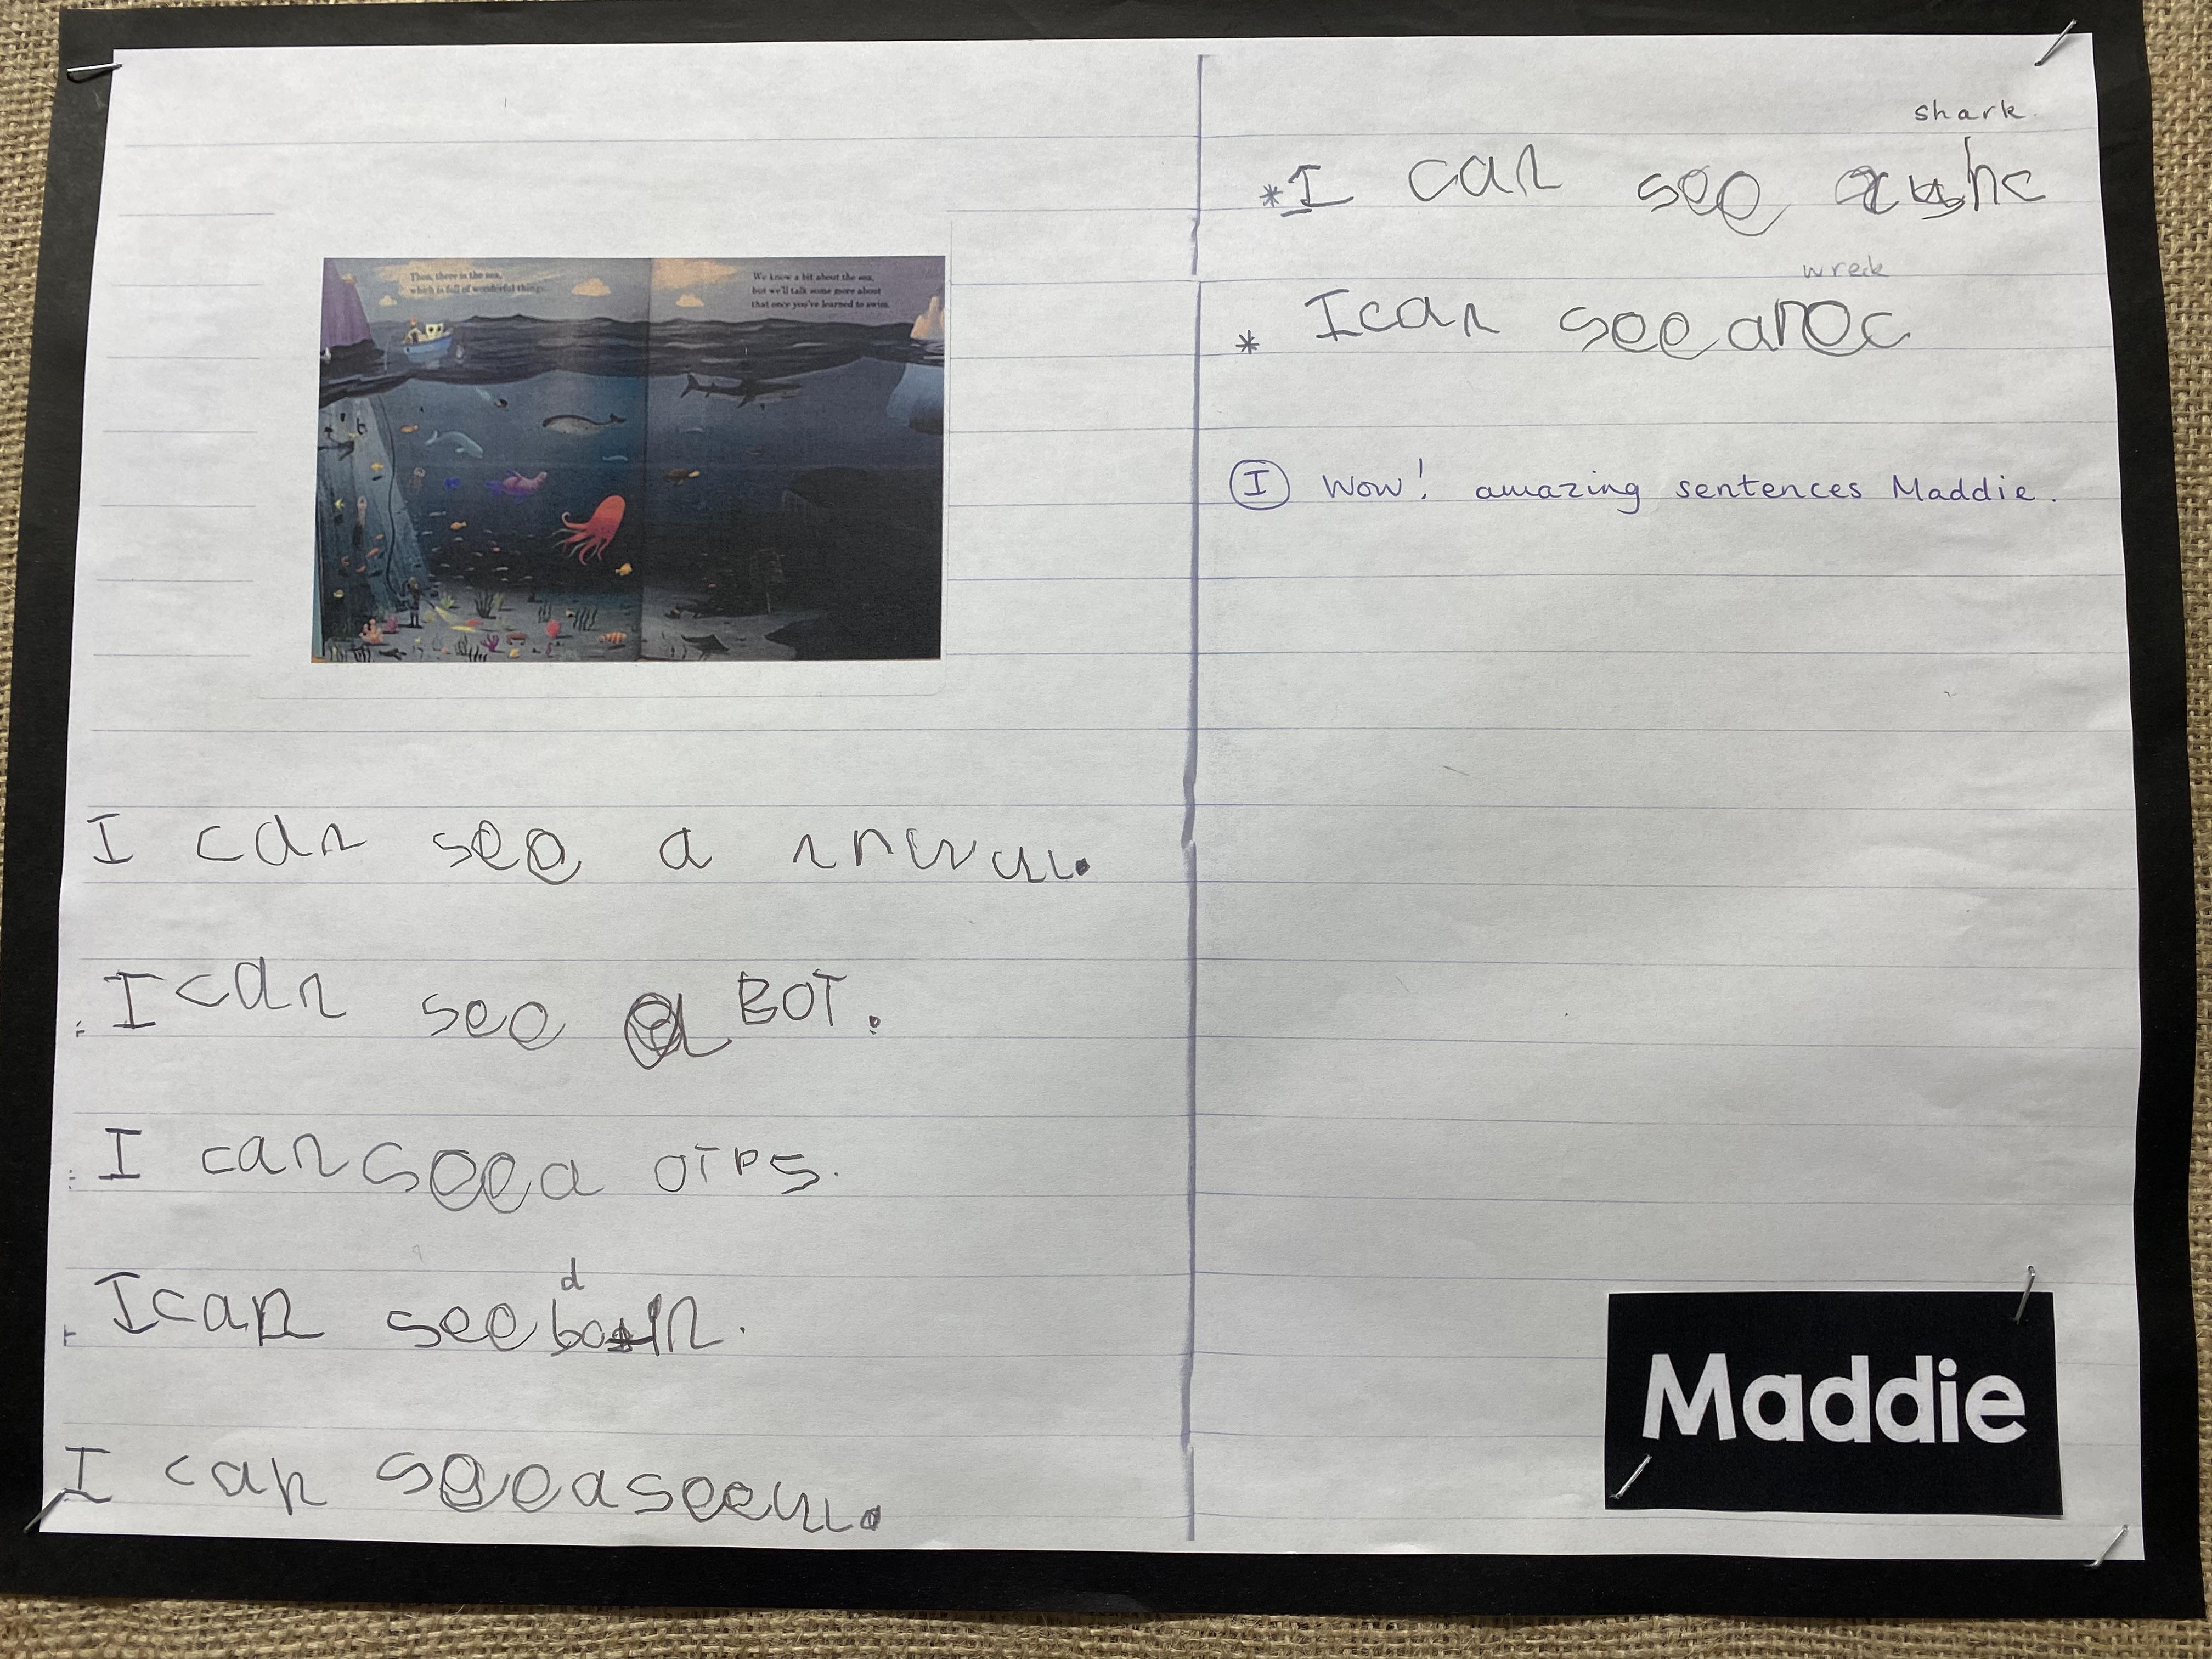 Then, there is the sea,
which is full of wonderful things.
We know a bit about the sea,
but we'll talk some more about
that once you've learned to swim.
I can see a
I can see a BOT.
I can see a OTPS.
d
I can see
I can see a
shark
* I can see a shc
wreck
* I can see a rec
I Wow! amazing sentences Maddie.
Maddie